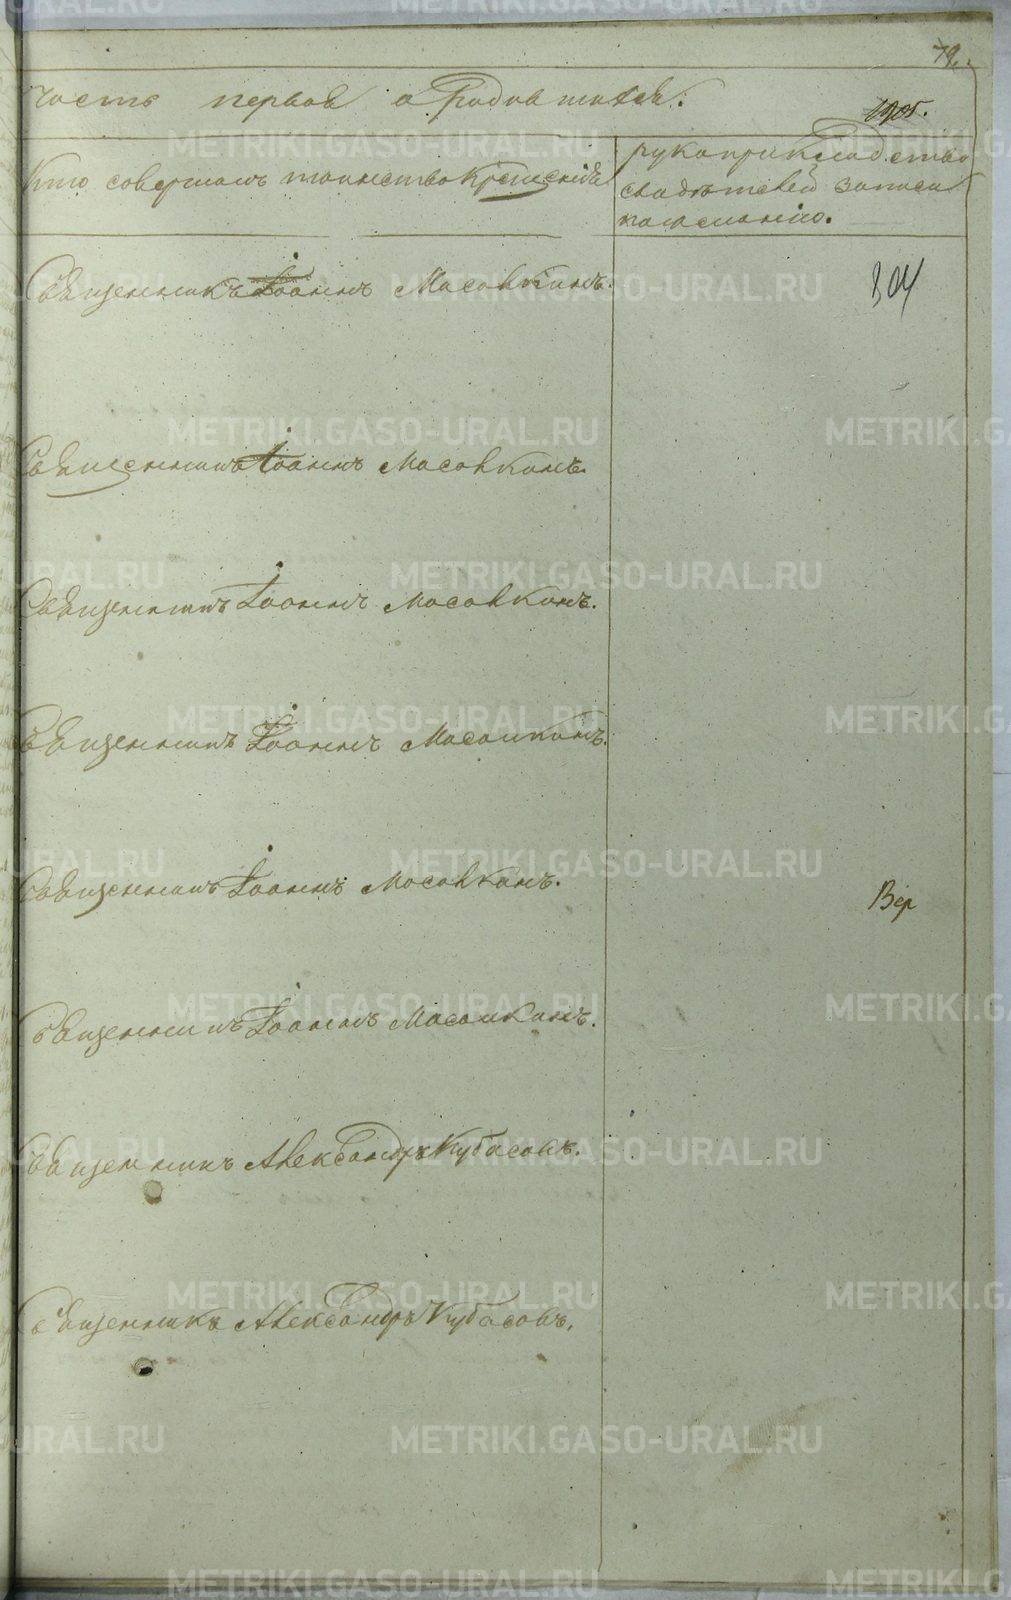 79.
часть первая о родившихся.
Кто совершалъ таинство крещенія
рукоприкладство
свидѣтелей записи
по желанію.
Священникъ Іоаннъ Масовкинъ.
304
Священникъ Іоаннъ Масовкинъ.
Священникъ Іоаннъ Масовкинъ.
Священникъ Іоаннъ Масовкинъ.
Священникъ Іоаннъ Масовкинъ.
Вер
Священникъ Іоаннъ Масовкинъ.
Священникъ Александръ Кубасовъ.
Священникъ Александръ Кубасовъ.
METRIKI.GASO-URAL.RU